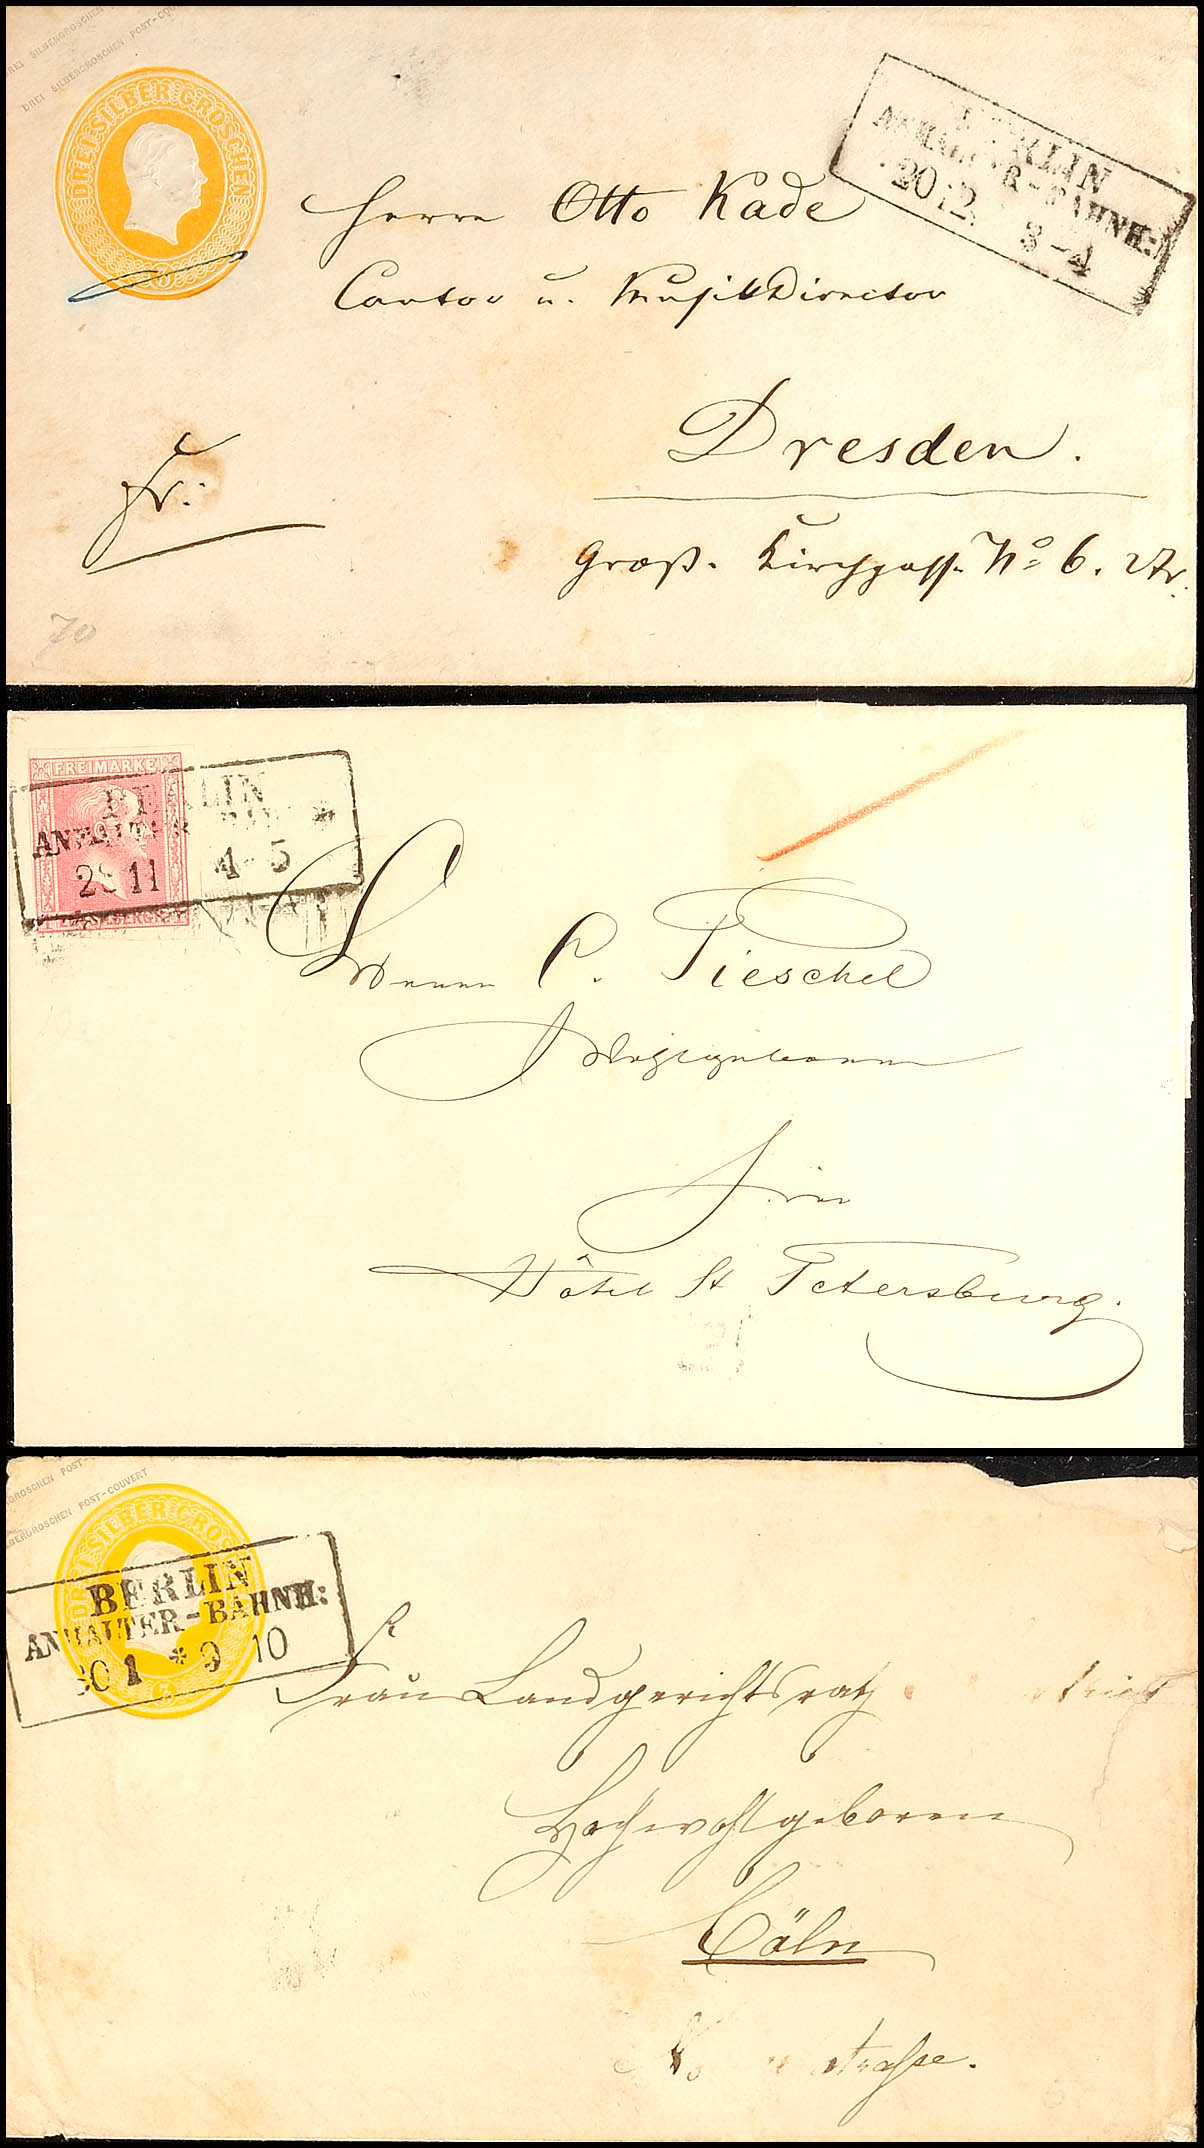 DREI SILBERGROSCHEN
DREI SILBERGROSCHEN POST-COU
DREI SILBER GROSCHEN
3
BERLIN
ANHALTER-BAHNH:
20 12 3-4
Herrn Otto Kade
Cantor u. Musikdirector
Dresden.
Fr:
Groß. Kirchgass. No 6.
70
FREIMARKE
BERLIN
ANHALTER
28 11 4-5
Herrn C. Pieschel
Wohlgeboren
Hier
Hôtel St Petersburg.
BERGROSCHEN POST-
BERGROSCHEN POST-COUVERT
DREI SILBER GROSCHEN
3
BERLIN
ANHALTER-BAHNH:
30 1 * 9 10
Frau Landgerichtsrath
Hochwohlgeboren
Cöln
strasse.